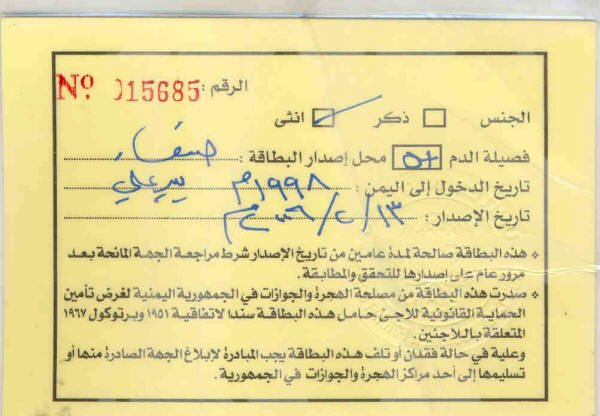 الرقم: Nº 015685
الجنس ☐ ذكر ☑ انثى
فصيلة الدم O+ محل إصدار البطاقة : صنعاء
تاريخ الدخول إلى اليمن : ١٩٩٨م بير علي
تاريخ الإصدار : ١٣/٢/
* هذه البطاقة صالحة لمدة عامين من تاريخ الإصدار شرط مراجعة الجهة المانحة بعد
مرور عام على إصدارها للتحقق والمطابقة .
* صدرت هذه البطاقة من مصلحة الهجرة والجوازات في الجمهورية اليمنية لغرض تأمين
الحماية القانونية للاجئ حامل هذه البطاقة سندا لاتفاقية ١٩٥١ وبرتوكول ١٩٦٧
المتعلقة باللاجئين .
وعلية في حالة فقدان أو تلف هذه البطاقة يجب المبادرة لإبلاغ الجهة الصادرة منها أو
تسليمها إلى أحد مراكز الهجرة والجوازات في الجمهورية .